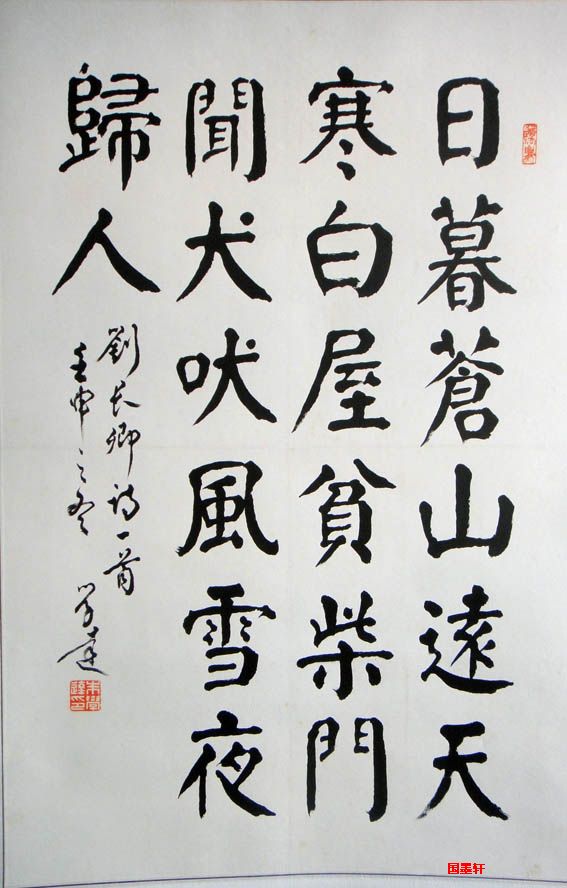 日暮蒼山遠天
寒白屋貧柴門
聞犬吠風雪夜
歸人
劉長卿詩一首
壬申之冬 學達
国墨轩